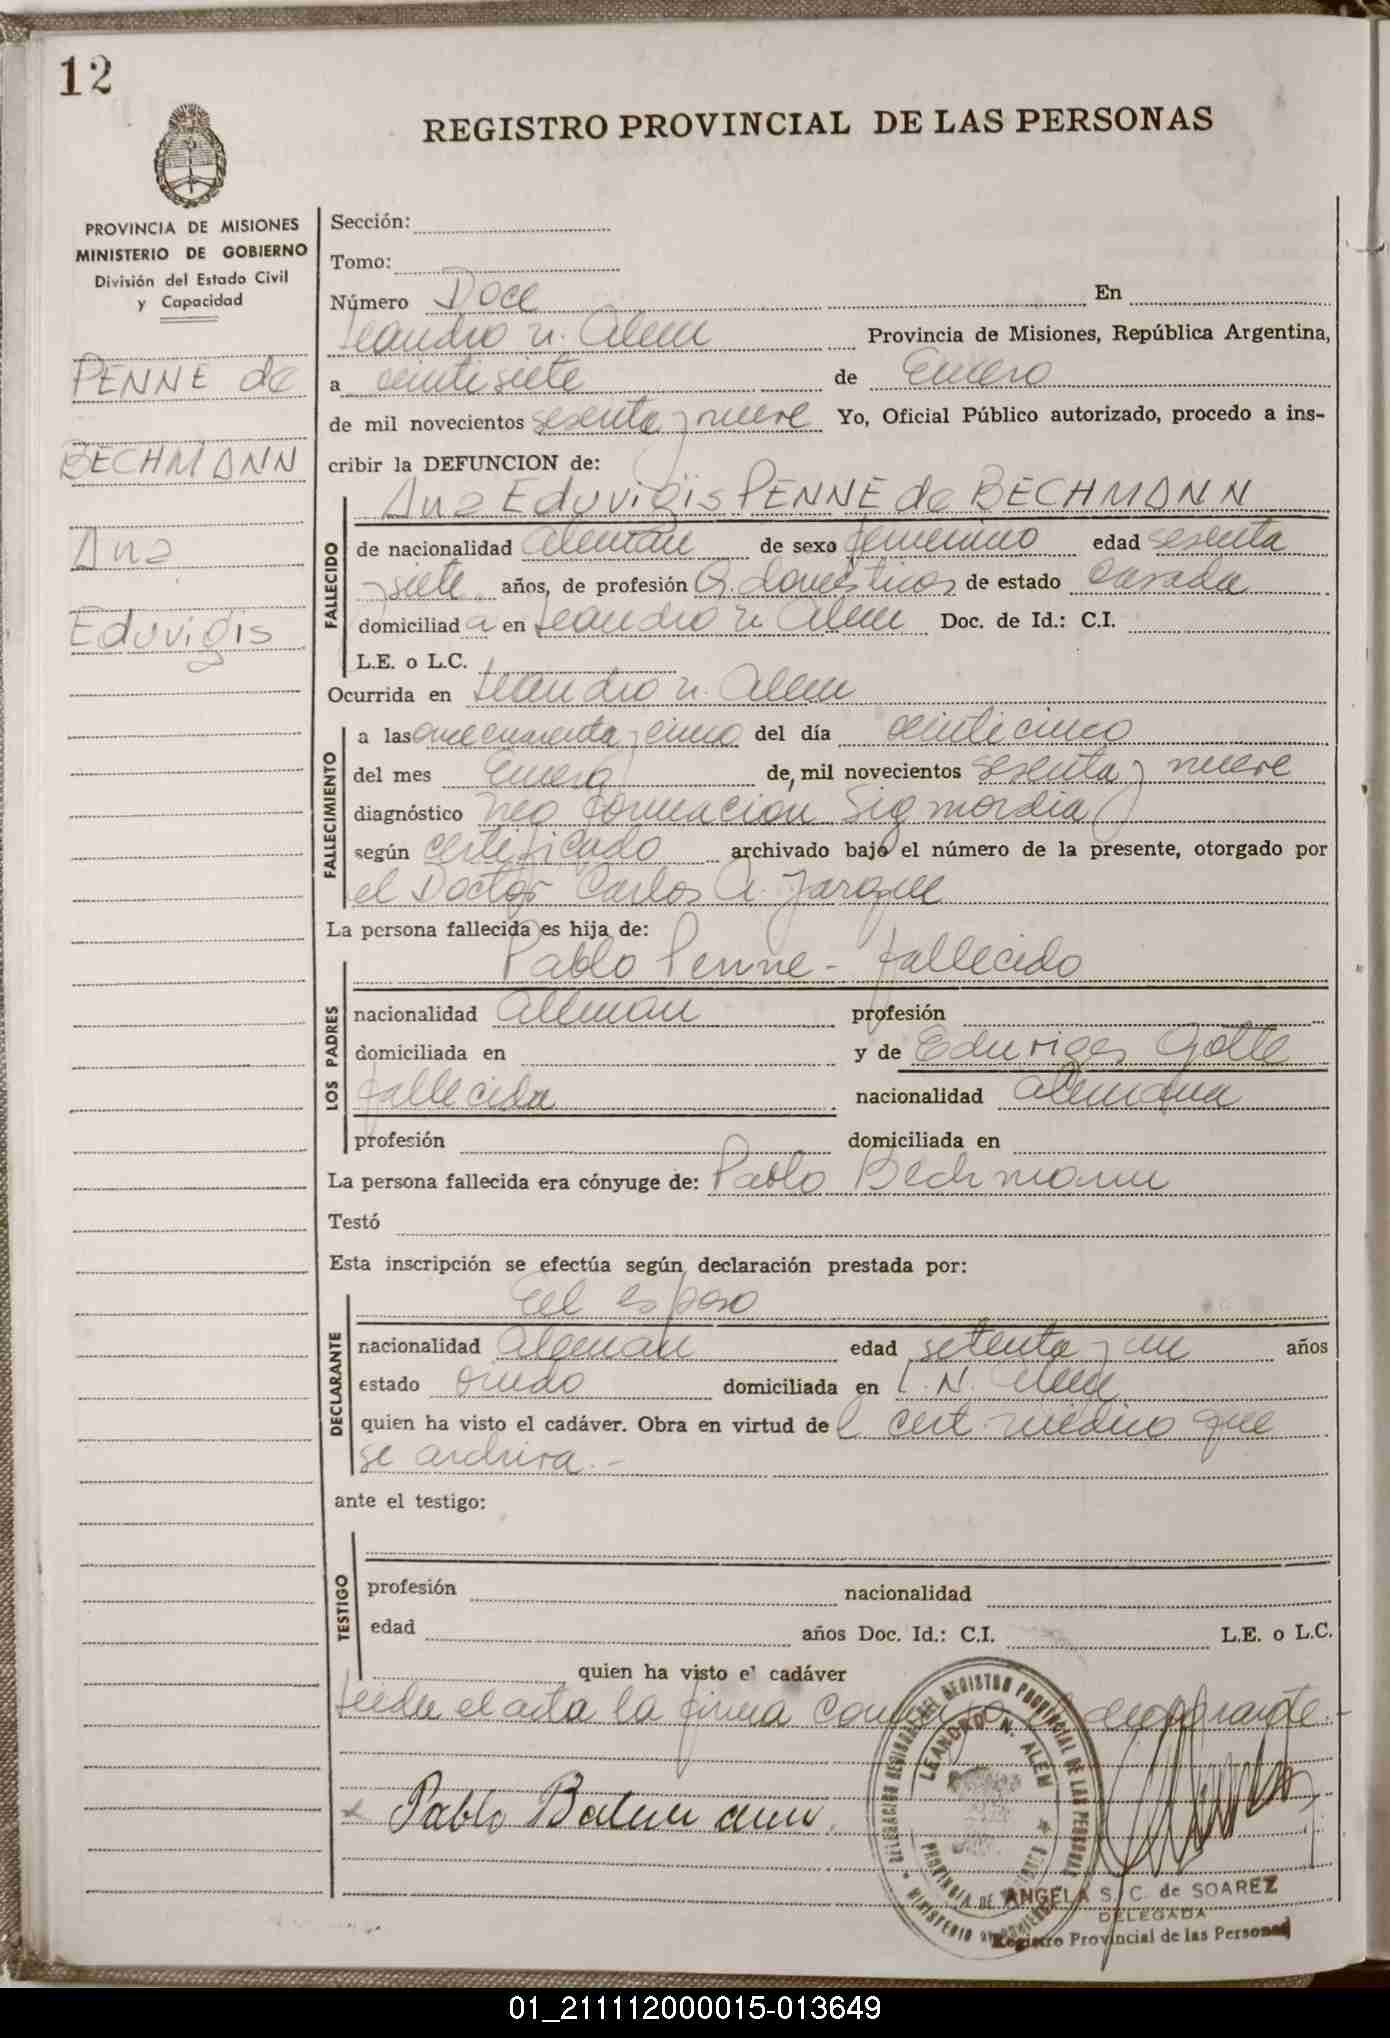 12
REGISTRO PROVINCIAL DE LAS PERSONAS
PROVINCIA DE MISIONES
MINISTERIO DE GOBIERNO
División del Estado Civil
y Capacidad
PENNE de
BECHMANN
Ana
Eduvigis
Sección:
Tomo:
Número Doce En
Leandro N. Alem Provincia de Misiones, República Argentina,
a veintisiete de Enero
de mil novecientos sesenta y nueve Yo, Oficial Público autorizado, procedo a ins-
cribir la DEFUNCION de:
FALLECIDO
Ana Eduvigis PENNE de BECHMANN
de nacionalidad Alemán de sexo femenino edad sesenta
y siete años, de profesión Q. domésticos de estado Casada
domiciliada en Leandro N. Alem Doc. de Id.: C.I.
L.E. o L.C.
Ocurrida en Leandro N. Alem
FALLECIMIENTO
a las once cuarenta y cinco del día veinticinco
del mes Enero de mil novecientos sesenta y nueve
diagnóstico neo formación Sigmordia
según certificado archivado bajo el número de la presente, otorgado por
el Doctor Carlos A. Jarque
La persona fallecida es hija de:
LOS PADRES
Pablo Penne - fallecido
nacionalidad Alemán profesión
domiciliada en y de Eduviges Golle
fallecida nacionalidad Alemana
profesión domiciliada en
La persona fallecida era cónyuge de: Pablo Bechmann
Testó
Esta inscripción se efectúa según declaración prestada por:
DECLARANTE
El esposo
nacionalidad Alemán edad setenta y un años
estado viudo domiciliada en L. N. Alem
quien ha visto el cadáver. Obra en virtud del cert. médico que
se archiva.-
ante el testigo:
TESTIGO
profesión nacionalidad
edad años Doc. Id.: C.I. L.E. o L.C.
quien ha visto el cadáver
Leída el acta la firma conmigo el declarante.-
x Pablo Bechmann
DELEGACION REGIONAL DEL REGISTRO PROVINCIAL DE LAS PERSONAS
LEANDRO N. ALEM
PROVINCIA DE MISIONES
MINISTERIO DE GOBIERNO
ANGELA S. C. de SOAREZ
DELEGADA
Registro Provincial de las Personas
01_211112000015-013649